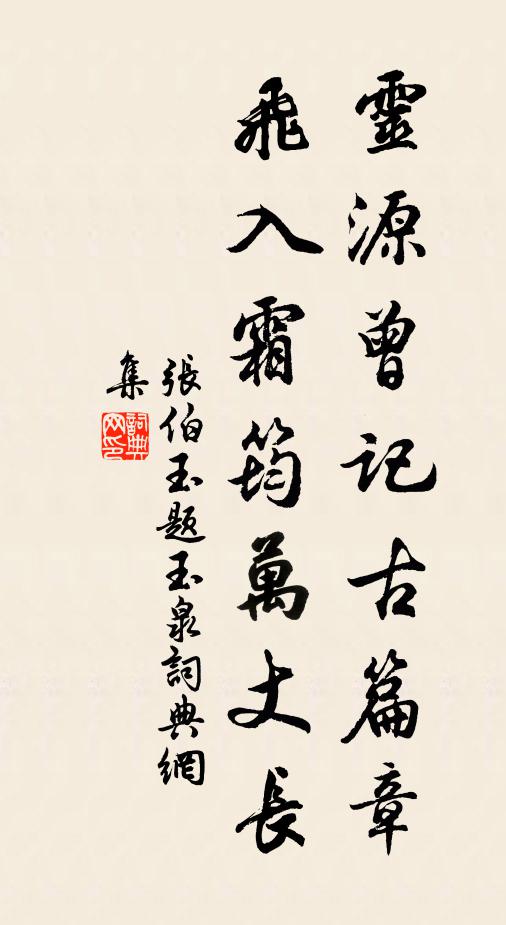 靈源曾記古篇章
飛入霜筠萬丈長
張伯玉題玉泉詞典網
集
詞典网印